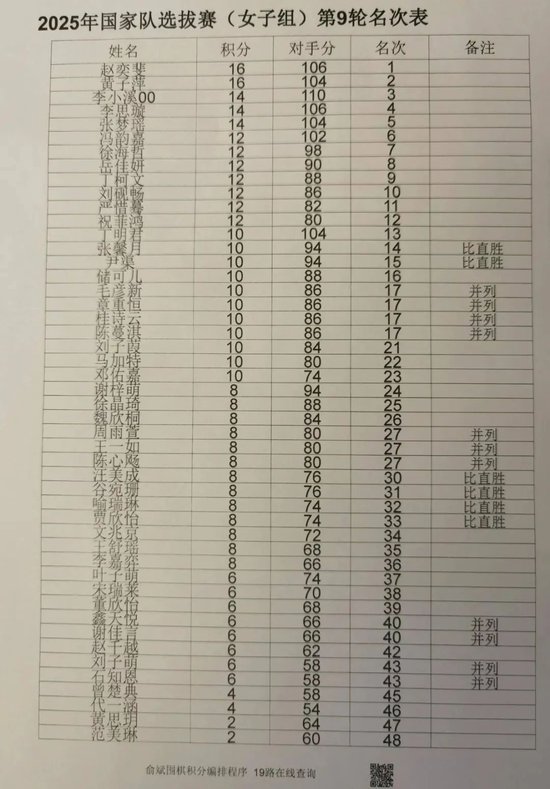 2025年国家队选拔赛（女子组）第9轮名次表
姓名 积分 对手分 名次 备注
赵奕斐 16 106 1
黄子萍 16 104 2
李小溪00 14 110 3
李思璇 14 106 4
张梦瑶 14 104 5
冯韵嘉 12 102 6
徐海哲 12 98 7
岳佳妍 12 90 8
丁柯文 12 88 9
刘砚畅 12 86 10
严惜蓦 12 82 11
祝菲鸿 12 80 12
丁明君 10 104 13
张馨月 10 94 14 比直胜
尹渠 10 94 15 比直胜
储可儿 10 88 16
毛彦新 10 86 17 并列
章重恒 10 86 17 并列
桂诗云 10 86 17 并列
陈蔓淇 10 86 17 并列
刘子茵 10 84 21
马加特 10 80 22
邓佑嘉 10 74 23
谢梓萌 8 94 24
徐晶琦 8 88 25
魏欣桐 8 84 26
周雨萱 8 80 27 并列
王一如 8 80 27 并列
陈心飏 8 80 27 并列
汪美成 8 76 30 比直胜
谷宛珊 8 76 31 比直胜
喻瑞琳 8 74 32 比直胜
贾欣怡 8 74 33 比直胜
文兆京 8 72 34
王舒瑶 8 68 35
李嘉弈 8 66 36
叶子萌 6 74 37
宋瑞莱 6 70 38
董欣怡 6 68 39
鑫天悦 6 66 40 并列
谢佳言 6 66 40 并列
赵于越 6 62 42
刘子萌 6 58 43 并列
石知恩 6 58 43 并列
曾楚典 4 58 45
代一涵 4 54 46
黄思玥 2 64 47
范美琳 2 60 48
俞斌围棋积分编排程序 19路在线查询